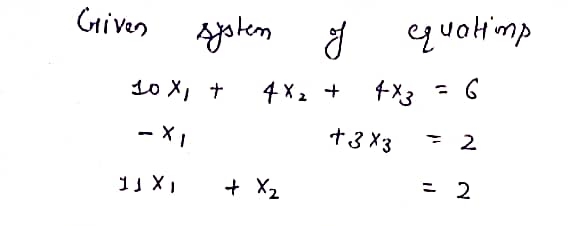 Given system of equations
10 X₁ + 4 X₂ + 4 X₃ = 6
- X₁ + 3 X₃ = 2
11 X₁ + X₂ = 2